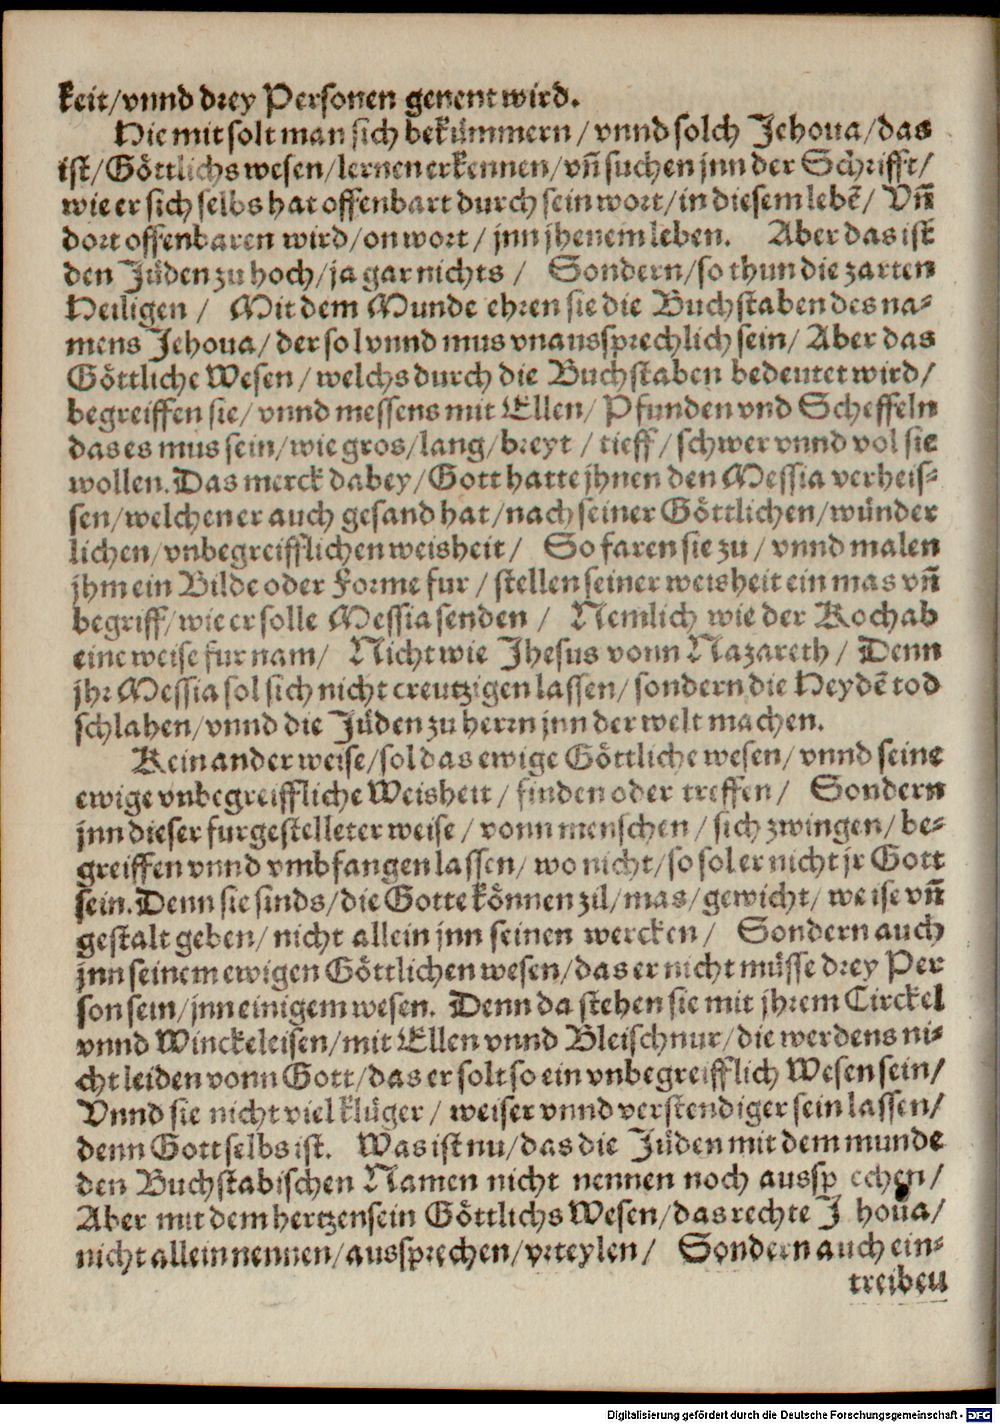 keit/vnnd drey Personen genent wird.
Hie mit solt man sich bekümmern/vnnd solch Jehoua/das
ist/Göttlichs wesen/lernen erkennen/vñ suchen jnn der Schrifft/
wie er sich selbs hat offenbart durch sein wort/in diesem lebē/Vñ
dort offenbaren wird/on wort/jnn jhenem leben. Aber das ist
den Jüden zu hoch/ja gar nichts/ Sondern/so thun die zarten
Heiligen/ Mit dem Munde ehren sie die Buchstaben des na-
mens Jehoua/der sol vnnd mus vnaussprechlich sein/Aber das
Göttliche Wesen/welchs durch die Buchstaben bedeutet wird/
begreiffen sie/vnnd messens mit Ellen/Pfunden vnd Scheffeln
das es mus sein/wie gros/lang/breyt/tieff/schwer vnnd vol sie
wollen. Das merck dabey/Gott hatte jhnen den Messia verheis-
sen/welchen er auch gesand hat/nach seiner Göttlichen/wünder
lichen/vnbegreifflichen weisheit/ So faren sie zu/vnnd malen
jhm ein Bilde oder Forme fur/stellen seiner weisheit ein mas vñ
begriff/wie er solle Messia senden/ Nemlich wie der Kochab
eine weise fur nam/ Nicht wie Jhesus vonn Nazareth/Denn
jhr Messia sol sich nicht creutzigen lassen/sondern die Heydē tod
schlahen/vnnd die Jüden zu herrn jnn der welt machen.
Kein ander weise/sol das ewige Göttliche wesen/vnnd seine
ewige vnbegreiffliche Weisheit/finden oder treffen/ Sondern
jnn dieser furgestelleter weise/vonn menschen/sich zwingen/be-
greiffen vnnd vmbfangen lassen/wo nicht/so sol er nicht jr Gott
sein. Denn sie sinds/die Gotte können zil/mas/gewicht/weise vñ
gestalt geben/nicht allein jnn seinen wercken/ Sondern auch
jnn seinem ewigen Göttlichen wesen/das er nicht müsse drey Per
son sein/jnn einigem wesen. Denn da stehen sie mit jhrem Circkel
vnnd Winckeleisen/mit Ellen vnnd Bleischnur/die werdens ni-
cht leiden vonn Gott/das er solt so ein vnbegreifflich Wesen sein/
Vnnd sie nicht viel klüger/weiser vnnd verstendiger sein lassen/
denn Gott selbs ist. Was ist nu/das die Jüden mit dem munde
den Buchstabischen Namen nicht nennen noch aussp echen/
Aber mit dem hertzen sein Göttlichs Wesen/das rechte J houa/
nicht allein nennen/aussprechen/vrteylen/ Sondern auch ein-
treiben
Digitalisierung gefördert durch die Deutsche Forschungsgemeinschaft - DFG